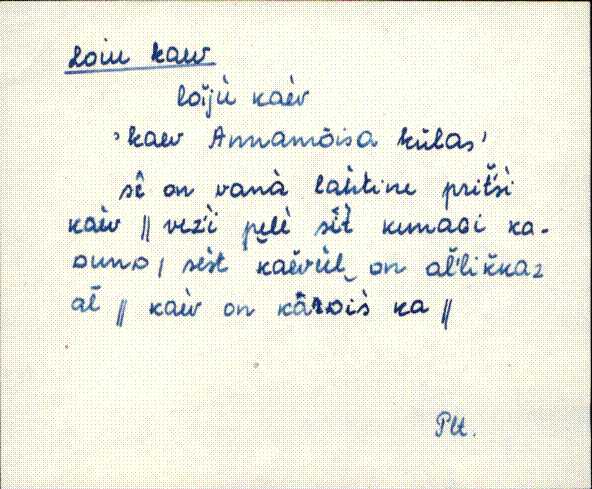 Loiu kaev
loĭjù kaèv
'kaev Annamõisa külas'
sê on vanà laht́ine prit́si
kaèv || vezì pɛlè sìt kunaɢi ka-
ᴅunᴅ, sèst kaĕvùl on al̆likkaᴢ
al̆ || kaèv on kâʀᴅis ka ||
Plt.